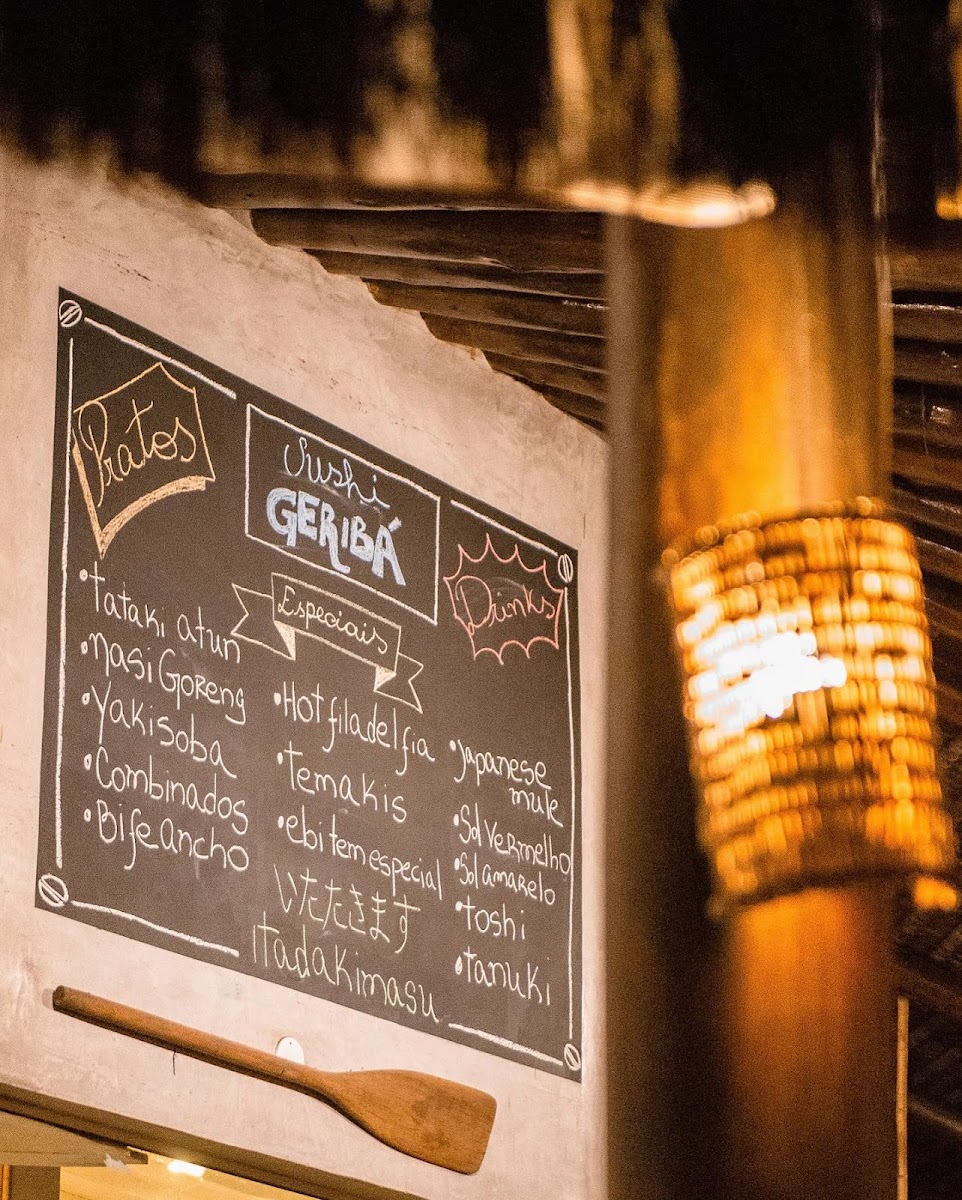 Pratos
Sushi
GERIBÁ
Especiais
Drinks
• tataki atun
• nasi Goreng
• Yakisoba
• Combinados
• Bife Ancho
• Hot filadelfia
• temakis
• ebi tem especial
いたたきます
itadakimasu
• Japanese
mule
• Sol Vermelho
• Sol amarelo
• toshi
• tanuki